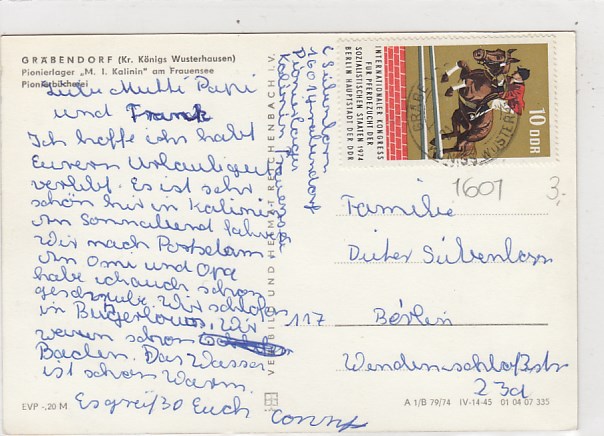 GRÄBENDORF (Kr. Königs Wusterhausen)
Pionierlager „M. I. Kalinin" am Frauensee
Pionierbücherei
Liebe Mutti Papi
und Frank
Ich hoffe ich habt
Euern Urlaub gut
verlebt. Es ist sehr
schön hir in Kalinin
Am Sonnabend fahre
Wir nach Postdam
An Omi und Opa
habe ich auch schon
geschriebe. Wir schlafen
in Bugerlows. Wir
waren schon
Baden. Das Wasser
ist schon Warm.
Es grüßt Euch
Conny
EVP -,20 M
VERLAG BILD UND HEIMAT REICHENBACH I. V.
1601 Gräbendorf
Pionierlager
Kalinin
INTERNATIONALER KONGRESS
FÜR PFERDEZUCHT DER
SOZIALISTISCHEN STAATEN 1974
BERLIN HAUPTSTADT DER DDR
10 DDR
1601
3,-
Familie
Dieter Silbenlorn
117 Berlin
Wendenschloßstr
23a
A 1/B 79/74 IV-14-45 01 04 07 335